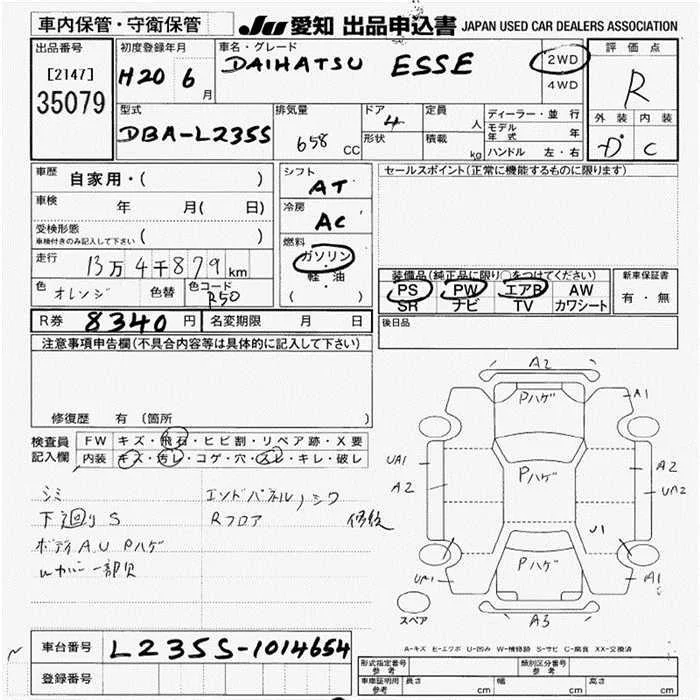 車内保管・守衛保管
JU 愛知 出品申込書 JAPAN USED CAR DEALERS ASSOCIATION
出品番号
[2147]
35079
初度登録年月
H20 6月
車名・グレード
DAIHATSU ESSE
2WD
4WD
評価点
R
外装 内装
D C
型式
DBA-L235S
排気量
658 CC
ドア
4
形状
定員
人
積載
kg
ディーラー・並行
モデル年式 年
ハンドル 左・右
車歴 自家用・( )
車検 年 月( 日)
受検形態
車検付きのみ記入して下さい ( )
走行 13万4千879km
色 オレンジ 色替 色コード R50
シフト
AT
冷房
AC
燃料
ガソリン
軽・油
( )
セールスポイント(正常に機能するものに限ります)
装備品(純正品に限り○をつけてください)
PS PW エアB AW
SR ナビ TV カワシート
新車保証書
有・無
R券 8340円 名変期限 月 日
後日品
注意事項申告欄(不具合内容等は具体的に記入して下さい)
修復歴 有 (箇所 )
検査員記入欄
FW キズ・飛石・ヒビ割・リペア跡・X要
内装 キズ・汚レ・コゲ・穴・スレ・キレ・破レ
シミ エンドパネル/シワ
下廻りS Rフロア 修後
ボディA.U Pハゲ
一部欠
A2
Pハゲ
A1
UA1
A2
Pハゲ
A2
UA2
U1
Pハゲ
UA1
A1
A3
スペア
A-キズ E-エクボ U-凹み W-補修跡 S-サビ C-腐食 XX-交換済
車台番号 L235S-1014654
登録番号
形式指定番号 参考
類別区分番号 参考
車庫証明用 参考 長さ cm 幅 cm 高さ cm